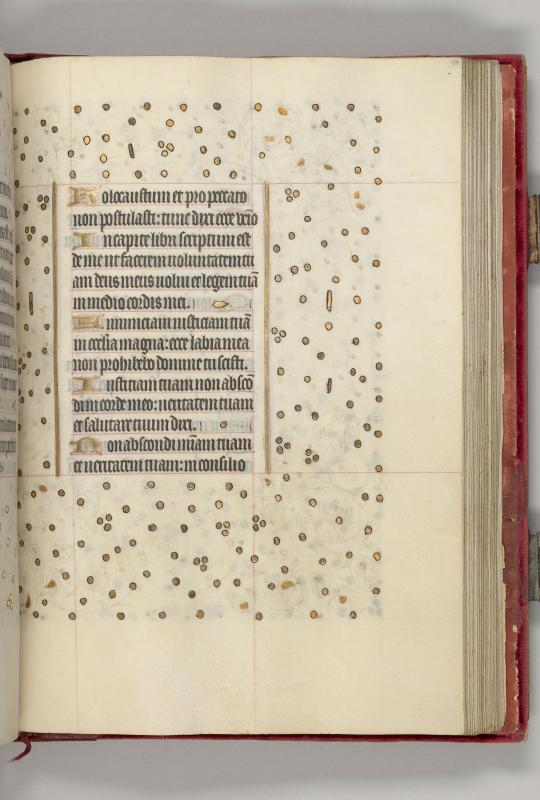 Holocaustum et pro peccato
non postulasti: tunc dixi ecce venio
In capite libri scriptum est
de me ut facerem voluntatem tu
am deus meus volui et legem tuā
in medio cordis mei.
Annunciavi iusticiam tuā
in ecclesia magna: ecce labia mea
non prohibebo domine tu scisti.
Iusticiam tuam non abscō
di in corde meo: veritatem tuam
et salutare tuum dixi.
Non abscondi miām tuam
et veritatem tuam: in consilio